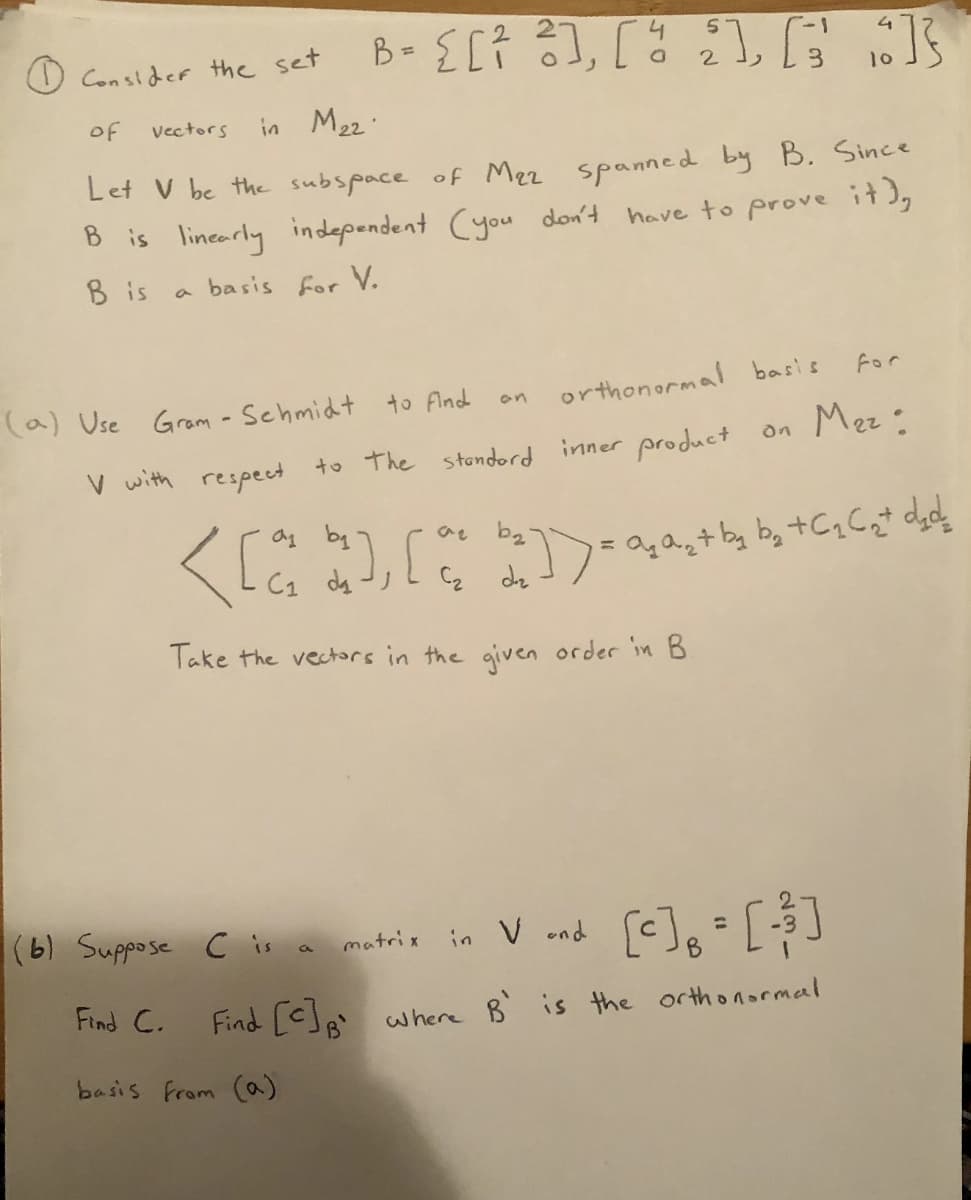 ① Consider the set B = {[2 2 1 0], [4 5 0 2], [-1 4 3 10]}
of vectors in M22.
Let V be the subspace of M22 spanned by B. Since
B is linearly independent (you don't have to prove it),
B is a basis for V.
(a) Use Gram-Schmidt to find an orthonormal basis for
V with respect to the standard inner product on M22:
<[a1 b1 c1 d1], [a2 b2 c2 d2]> = a1a2+b1b2+C1C2+d1d2
Take the vectors in the given order in B
(b) Suppose C is a matrix in V and [C]B = [2 -3 1]
Find C. Find [C]B` where B` is the orthonormal
basis from (a)